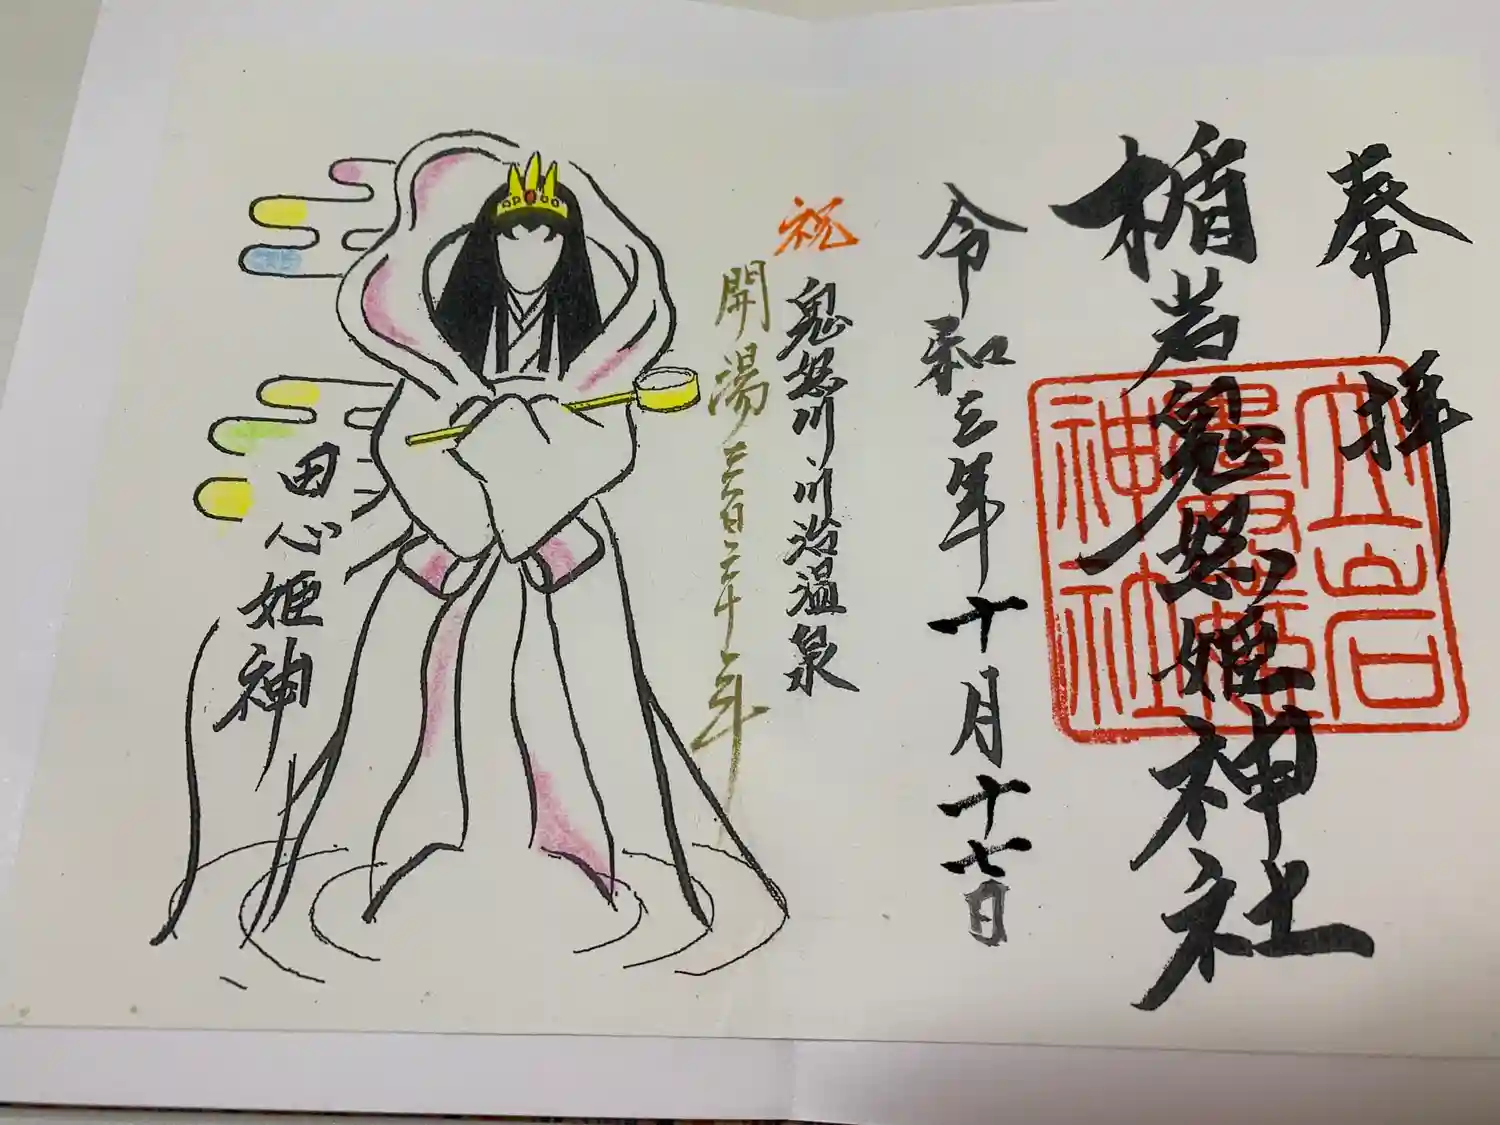 奉拝
楯岩鬼怒姫神社
令和三年十月十七日
祝
鬼怒川・川治温泉
開湯三百三十年
田心姫神